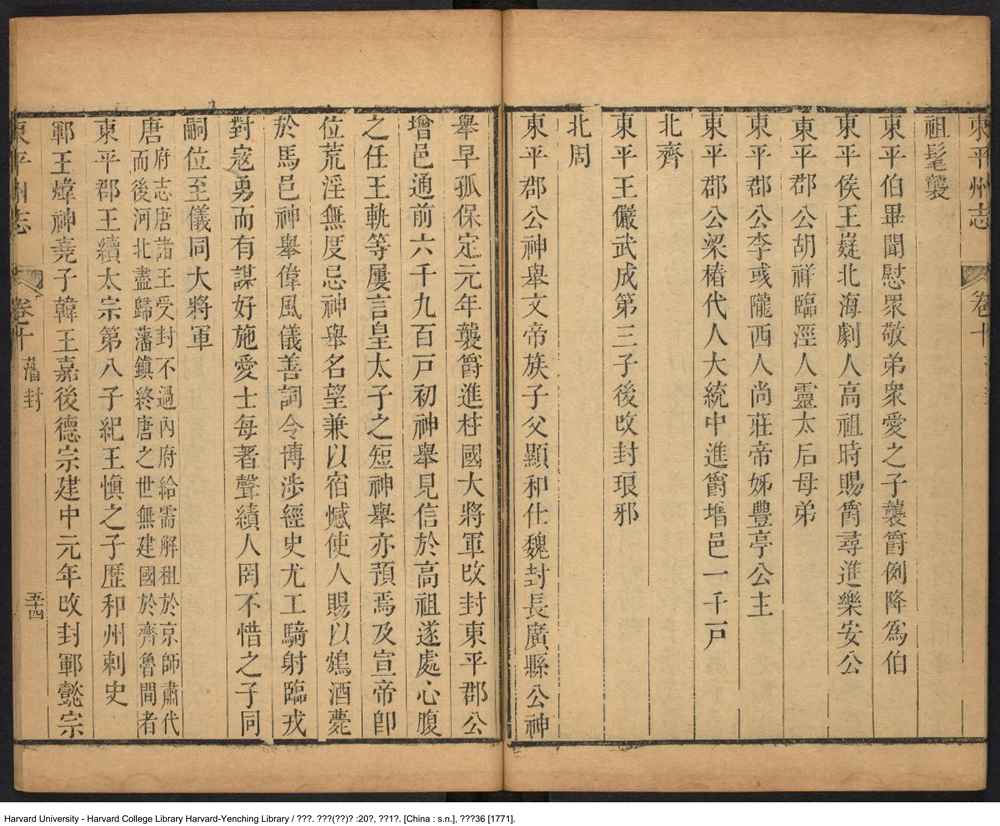 東平州志
卷十
祖髦襲
東平伯畢聞慰眾敬弟衆愛之子襲爵例降為伯
東平侯王嶷北海劇人高祖時賜爵尋進樂安公
東平郡公胡祥臨涇人靈太后母弟
東平郡公李彧隴西人尚莊帝姊豐亭公主
東平郡公梁椿代人大統中進爵增邑一千戸
北齊
東平王儼武成第三子後攺封琅邪
北周
東平郡公神舉文帝族子父顯和仕魏封長廣縣公神
舉早孤保定元年襲爵進柱國大將軍攺封東平郡公
增邑通前六千九百戸初神舉見信於高祖遂處心腹
之任王軌等屢言皇太子之短神舉亦預焉及宣帝卽
位荒淫無度忌神舉名望兼以宿憾使人賜以鴆酒薨
於馬邑神舉偉風儀善詞令博涉經史尤工騎射臨戎
對寇勇而有謀好施愛士每著聲績人罔不惜之子同
嗣位至儀同大將軍
唐府志唐諸王受封不過內府給需解租於京師肅代
而後河北盡歸藩鎮終唐之世無建國於齊魯間者
東平郡王續太宗第八子紀王愼之子歷和州刺史
鄆王煒神堯子韓王嘉後德宗建中元年攺封鄆懿宗
東平州志
卷十
藩封
五十四
Harvard University - Harvard College Library Harvard-Yenching Library / ???. ???(??)? :20?, ??1?. [China : s.n.], ???36 [1771].